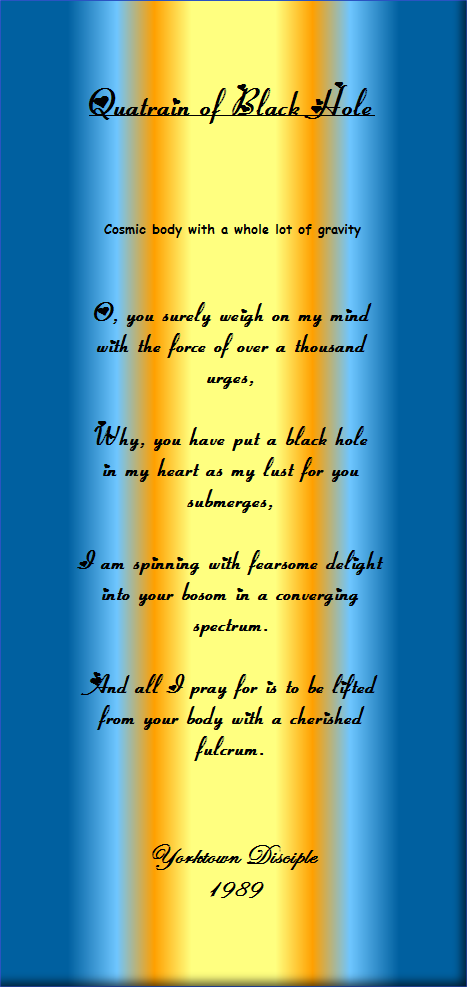 Quatrain of Black Hole
Cosmic body with a whole lot of gravity
O, you surely weigh on my mind
with the force of over a thousand
urges,
Why, you have put a black hole
in my heart as my lust for you
submerges,
I am spinning with fearsome delight
into your bosom in a converging
spectrum.
And all I pray for is to be lifted
from your body with a cherished
fulcrum.
Yorktown Disciple
1989